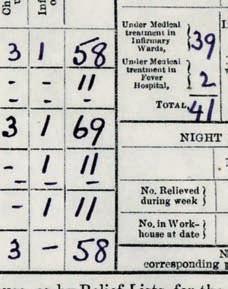 Under Medical
treatment in
Infirmary
Wards,
39
Under Medical
treatment in
Fever
Hospital,
2
TOTAL, 41
3 1 58
- - 11
3 1 69
- 1 11
- 1 11
3 - 58
NIGHT
No. Relieved
during week
No. in Work-
house at date
corresponding